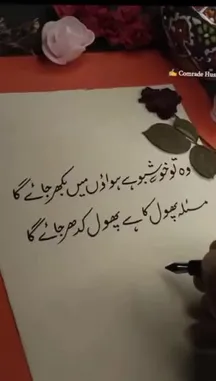 Comrade Hus
وہ تو خوشبو ہے ہواؤں میں بکھر جائے گا
مسئلہ پھول کا ہے پھول کدھر جائے گا